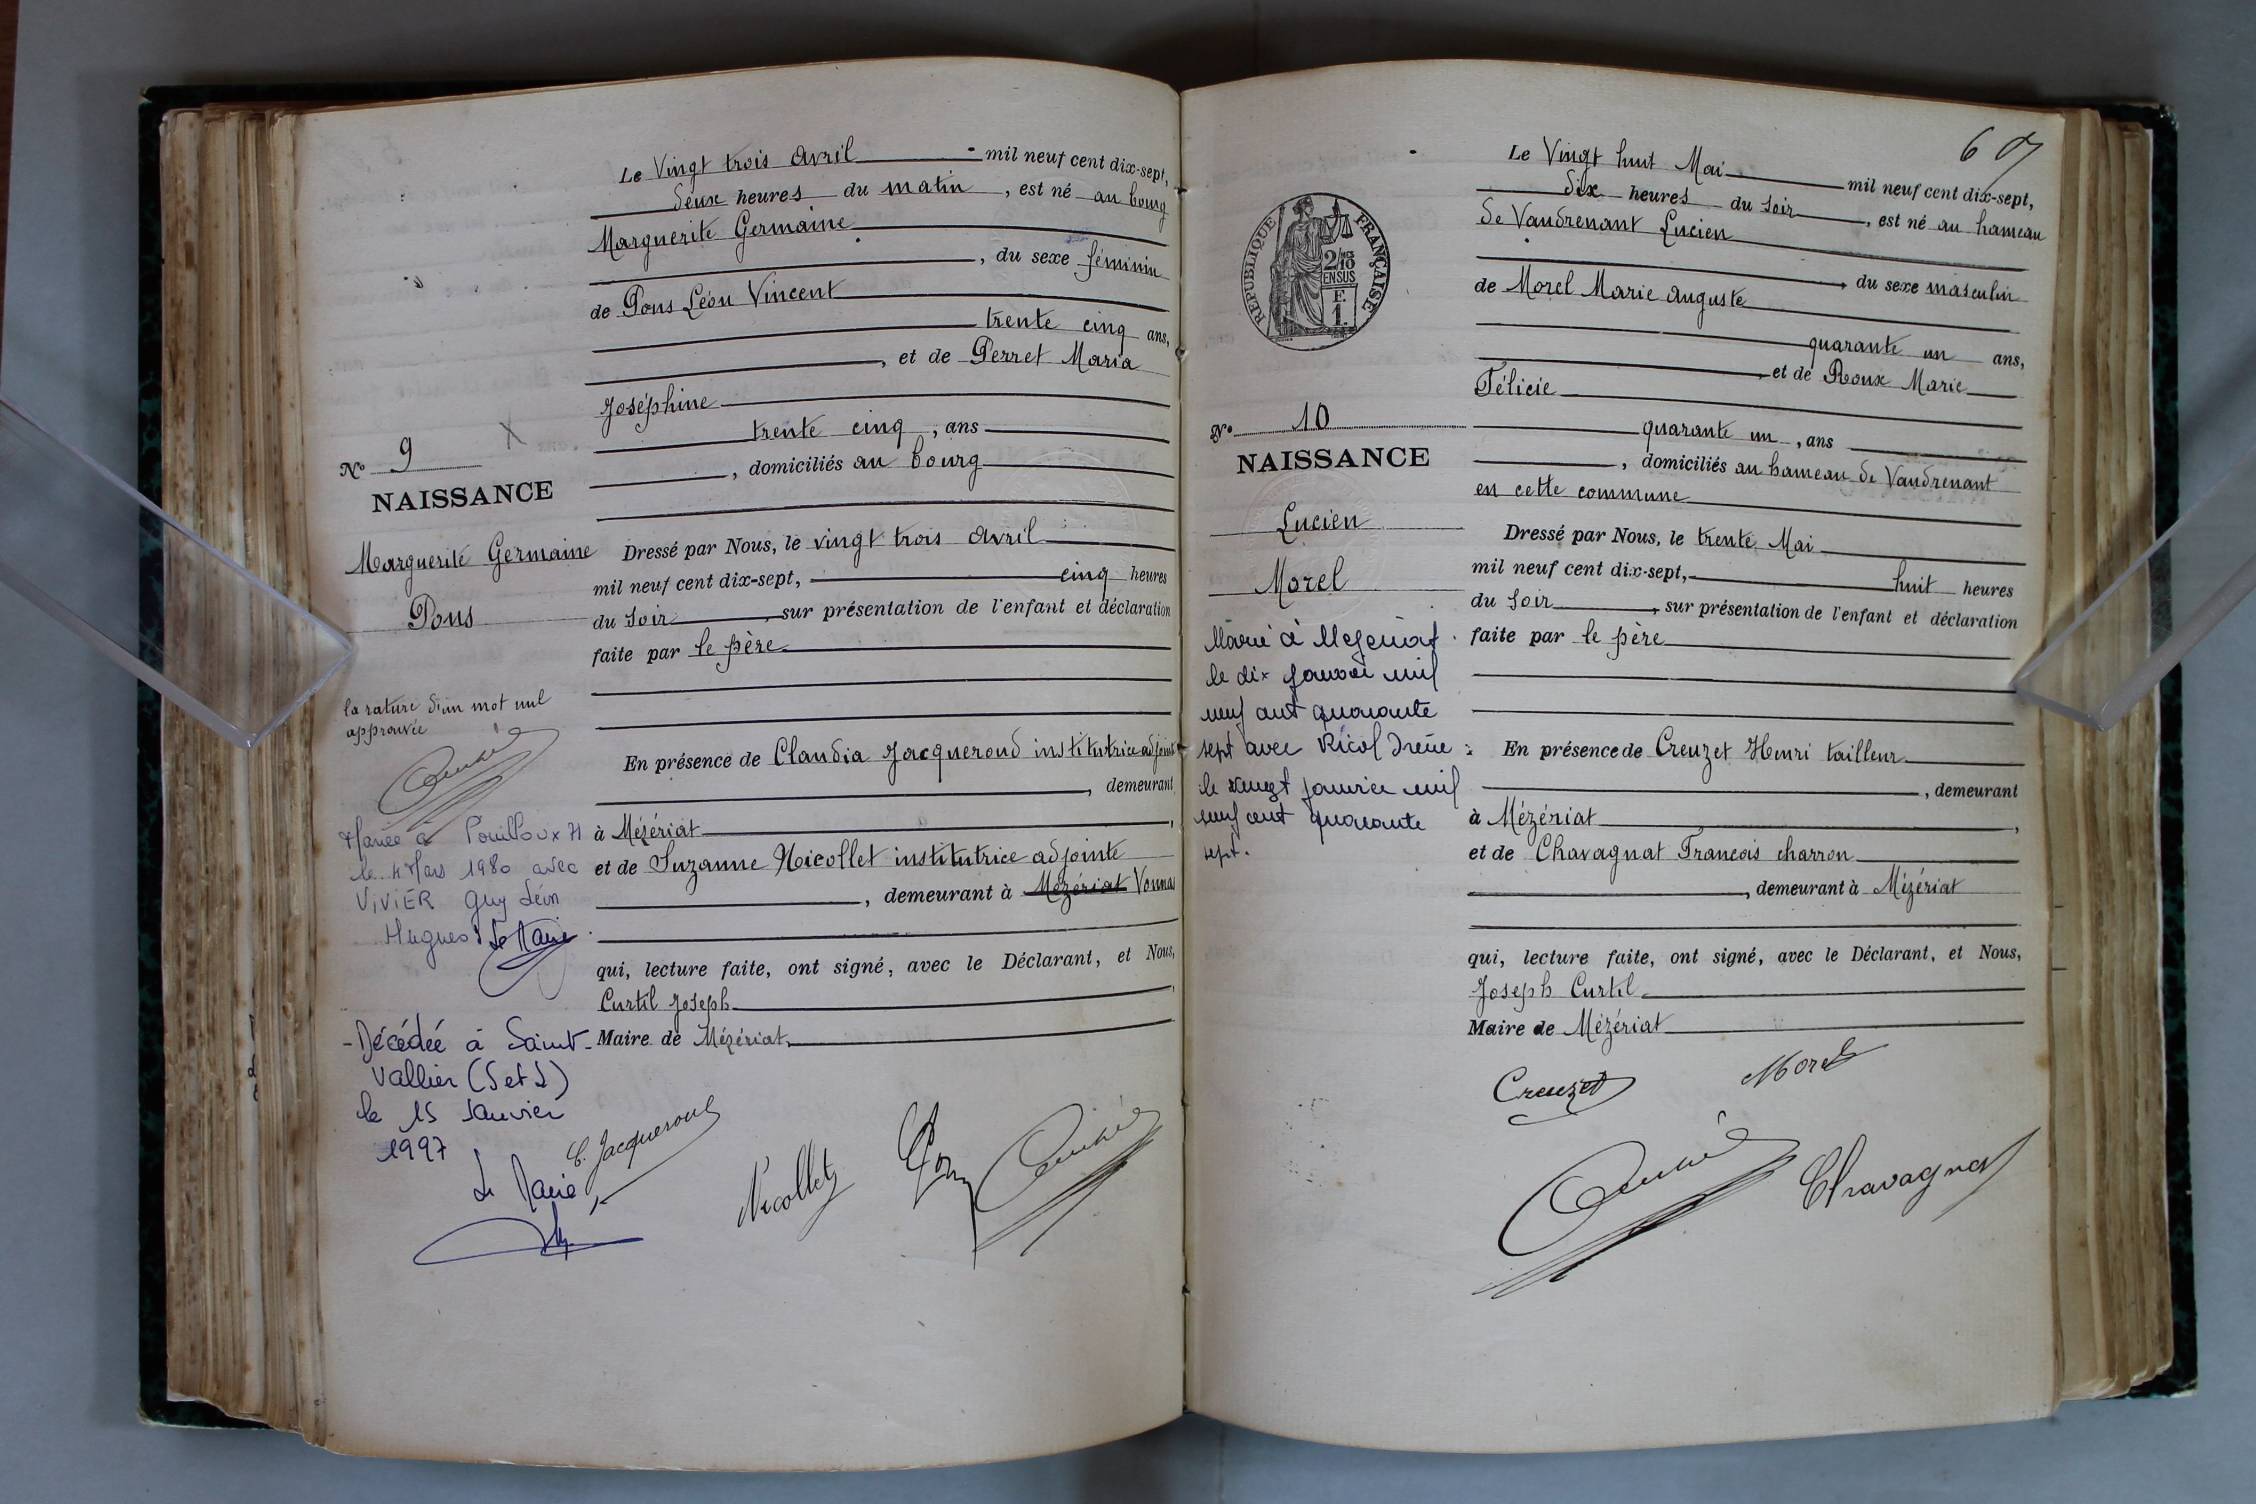 Le Vingt trois Avril mil neuf cent dix-sept,
deux heures du matin, est né au bourg
Marguerite Germaine
, du sexe féminin
de Pons Léon Vincent
trente cinq ans,
, et de Perret Maria
Joséphine
trente cinq, ans
, domiciliés au bourg
Nº 9
NAISSANCE
Marguerite Germaine
Pons
Dressé par Nous, le vingt trois Avril
mil neuf cent dix-sept, cinq heures
du soir, sur présentation de l'enfant et déclaration
faite par le père
la rature d'un mot nul
approuvée
En présence de Claudia Jacqueroud institutrice adjointe
, demeurant
à Mézériat,
et de Suzanne Nicollet institutrice adjointe
, demeurant à Mézériat Vonnas
Mariée à Pouilloux 71
le 4 Mars 1980 avec
VIVIER Guy Léon
Hugues Le Maire
qui, lecture faite, ont signé, avec le Déclarant, et Nous,
Curtil Joseph,
Maire de Mézériat.
- Décédée à Saint-
Vallier (S et L)
le 15 Janvier
1997
Le Maire
C. Jacqueroud
Nicollet
Pons
60
RÉPUBLIQUE FRANÇAISE
2/10 EN SUS
F.
1.
Le Vingt huit Mai mil neuf cent dix-sept,
dix heures du soir, est né au hameau
de Vaudrenant Lucien
, du sexe masculin
de Morel Marie Auguste
quarante un ans,
, et de Roux Marie
Félicie
quarante un, ans
, domiciliés au hameau de Vaudrenant
en cette commune
Nº 10
NAISSANCE
Lucien
Morel
Dressé par Nous, le trente Mai
mil neuf cent dix-sept, huit heures
du soir, sur présentation de l'enfant et déclaration
faite par le père
Marié à Mézériat
le dix janvier mil
neuf cent quarante
sept avec Ricol Irène
le vingt janvier mil
neuf cent quarante
sept.
En présence de Creuzet Henri tailleur
, demeurant
à Mézériat,
et de Chavagnat Francois charron
, demeurant à Mézériat
qui, lecture faite, ont signé, avec le Déclarant, et Nous,
Joseph Curtil
Maire de Mézériat
Creuzet
Morel
Chavagnat